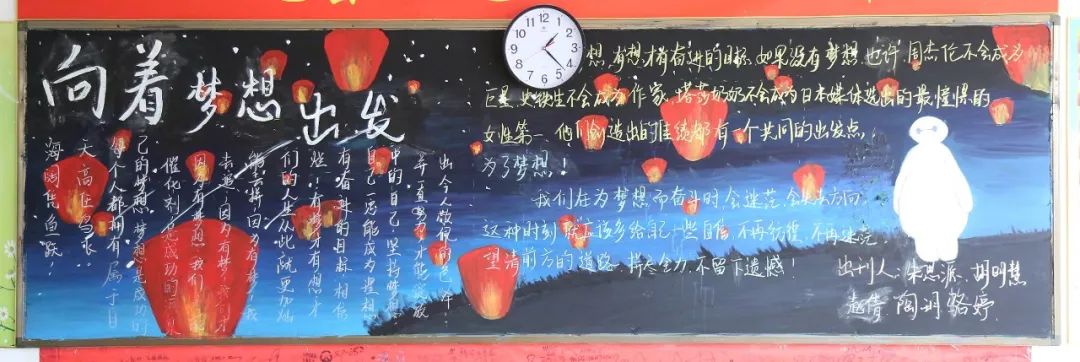 向着梦想出发
海阔凭鱼跃！
天高任鸟飞。
每个人都拥有属于自
己的梦想，梦想是成功的
催化剂，是成功的
因为有梦想，我们
去
能，拼，因为有梦，我
们的人生从此就更加灿
烂！有梦才有想才
有奋斗的目标，相信
自己一定能成为理想
中的自己，坚持
并一直努力，才能绽放
出令人
想，有想才有奋进的目标，如果没有梦想，也许周杰伦不会成为
巨星，史铁生不会成为作家，塔莎奶奶不会成为日本媒体选出的最憧憬的
女性第一，他们创造出的佳绩都有一个共同的出发点，
为了梦想！
我们在为梦想而奋斗时，会迷茫，会失去方向，
这种时刻就应该多给自己一些自信，不再彷徨，不再迷茫，
望清前方的道路，拼尽全力，不留下遗憾！
出刊人：朱思源 胡明慧
赵倩 陶玥 骆婷